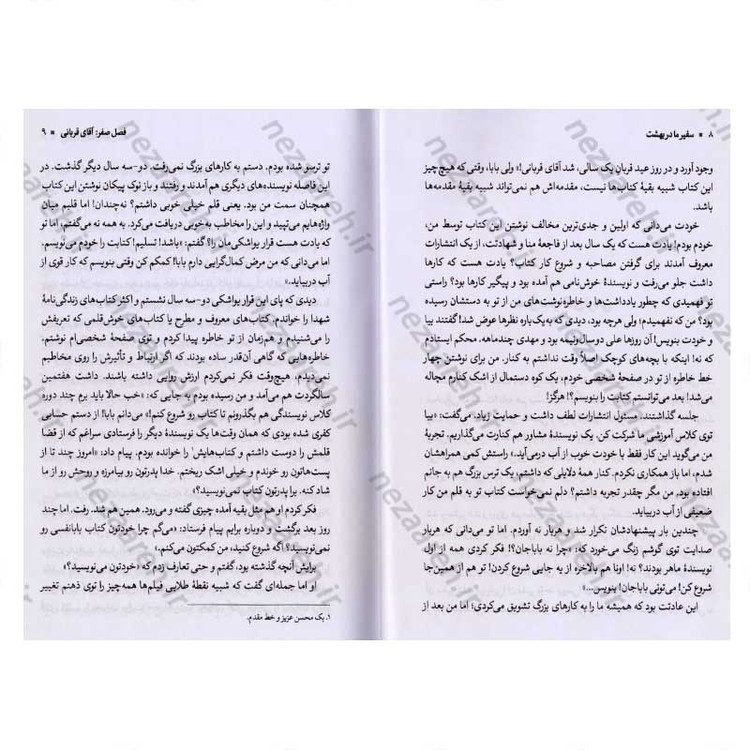 ۸ ■ سفیر ما در بهشت
وجود آورد و در روز عید قربانِ یک سالی، شد آقای قربانی!» ولی بابا، وقتی که هیچ چیز
این کتاب شبیه بقیهٔ کتاب‌ها نیست، مقدمه‌اش هم نمی‌تواند شبیه بقیهٔ مقدمه‌ها
باشد.
خودت می‌دانی که اولین و جدی‌ترین مخالف نوشتن این کتاب توسط من،
خودم بودم! یادت هست که یک سال بعد از فاجعهٔ منا و شهادتت، از یک انتشارات
معروف آمدند برای گرفتن مصاحبه و شروع کار کتاب؟ یادت هست که کارها
داشت جلو می‌رفت و نویسندهٔ خوش‌نامی هم آمده بود و پیگیر کارها بود؟ راستی
تو فهمیدی که چطور یادداشت‌ها و خاطره‌نوشت‌های من از تو به دستشان رسیده
بود؟ من که نفهمیدم! ولی هرچه بود، دیدی که به یک‌باره نظرها عوض شد! گفتند بیا
و خودت بنویس! آن روزها علی دوسال‌ونیمه بود و مهدی چندماهه. محکم ایستادم
که نه! اینکه با بچه‌های کوچک اصلاً وقت نداشتم به کنار. من برای نوشتن چهار
خط خاطره از تو در صفحهٔ شخصی خودم، یک کوه دستمال از اشک کنارم مچاله
می‌شد! بعد می‌توانستم کتابت را بنویسم؟! هرگز!
جلسه گذاشتند. مسئول انتشارات لطف داشت و حمایت زیاد. می‌گفت: «بیا
توی کلاس آموزشی ما شرکت کن. یک نویسندهٔ مشاور هم کنارت می‌گذاریم. تجربهٔ
من می‌گوید این کار فقط با خودت خوب از آب درمی‌آید.» راستش کمی همراهشان
شدم، اما باز همکاری نکردم. کنار همهٔ دلایلی که داشتم، یک ترس بزرگ هم به جانم
افتاده بود. من مگر چقدر تجربه داشتم؟ دلم نمی‌خواست کتاب تو به قلم من کار
ضعیفی از آب دربیاید.
چندین بار پیشنهادشان تکرار شد و هربار نه آوردم. اما تو می‌دانی که هربار
صدایت توی گوشم زنگ می‌خورد که: «چرا نه باباجان؟! فکر کردی همه از اول
نویسندهٔ ماهر بودند؟ نه! اونا هم بالاخره از یه جایی شروع کردن! تو هم از همین‌جا
شروع کن! می‌تونی باباجان! بنویس...»
این عادتت بود که همیشه ما را به کارهای بزرگ تشویق می‌کردی؛ اما من بعد از
فصل صفر: آقای قربانی ■ ۹
تو ترسو شده بودم. دستم به کارهای بزرگ نمی‌رفت. دو-سه سال دیگر گذشت. در
این فاصله نویسنده‌های دیگری هم آمدند و رفتند و باز نوک پیکان نوشتن این کتاب
همچنان سمت من بود. یعنی قلم خیلی خوبی داشتم؟ نه‌چندان! اما قلبم میان
واژه‌هایم می‌تپید و این را مخاطب به‌خوبی دریافت می‌کرد. به همه نه می‌گفتم، اما تو
که یادت هست قرار یواشکی‌مان را؟ گفتم: «باشد! تسلیم! کتابت را خودم می‌نویسم،
اما می‌دانی که من مرض کمال‌گرایی دارم بابا! کمکم کن وقتی بنویسم که کار قوی از
آب دربیاید.»
دیدی که پای این قرار یواشکی دو-سه سال نشستم و اکثر کتاب‌های زندگی‌نامهٔ
شهدا را خواندم. کتاب‌های معروف و مطرح یا کتاب‌های خوش‌قلمی که تعریفش
را می‌شنیدم و هم‌زمان از تو خاطره پیدا کردم و توی صفحهٔ شخصی‌ام نوشتم.
خاطره‌هایی که گاهی آن‌قدر ساده بودند که اگر ارتباط و تأثیرش را روی مخاطبم
نمی‌دیدم، هیچ‌وقت فکر نمی‌کردم ارزش روایی داشته باشند. داشت هفتمین
سالگردت هم می‌آمد و من رسیده بودم به جایی که: «خب حالا باید برم چند دوره
کلاس نویسندگی هم بگذرونم تا کتاب رو شروع کنم!» می‌دانم بابا! از دستم حسابی
کفری شده بودی که همان وقت‌ها یک نویسندهٔ دیگر را فرستادی سراغم که از قضا
قلمش را دوست داشتم و کتاب‌هایش¹ را خوانده بودم. پیام داد: «امروز چند تا از
پست‌هاتون رو خوندم و خیلی اشک ریختم. خدا پدرتون رو بیامرزه و روحش رو از ما
شاد کنه. برا پدرتون کتاب نمی‌نویسید؟»
فکر کردم او هم مثل بقیه آمده چیزی گفته و می‌رود. همین هم شد. رفت. اما چند
روز بعد برگشت و دوباره برایم پیام فرستاد: «می‌گم چرا خودتون کتاب بابانفسی رو
نمی‌نویسید؟ اگه شروع کنید، من کمکتون می‌کنم.»
برایش آنچه گذشته بود، گفتم و حتی تعارف زدم که «خودتون می‌نویسید؟»
او اما جمله‌ای گفت که شبیه نقطهٔ طلایی فیلم‌ها همه‌چیز را توی ذهنم تغییر
۱. یک محسن عزیز و خط مقدم.
nezaareh.ir